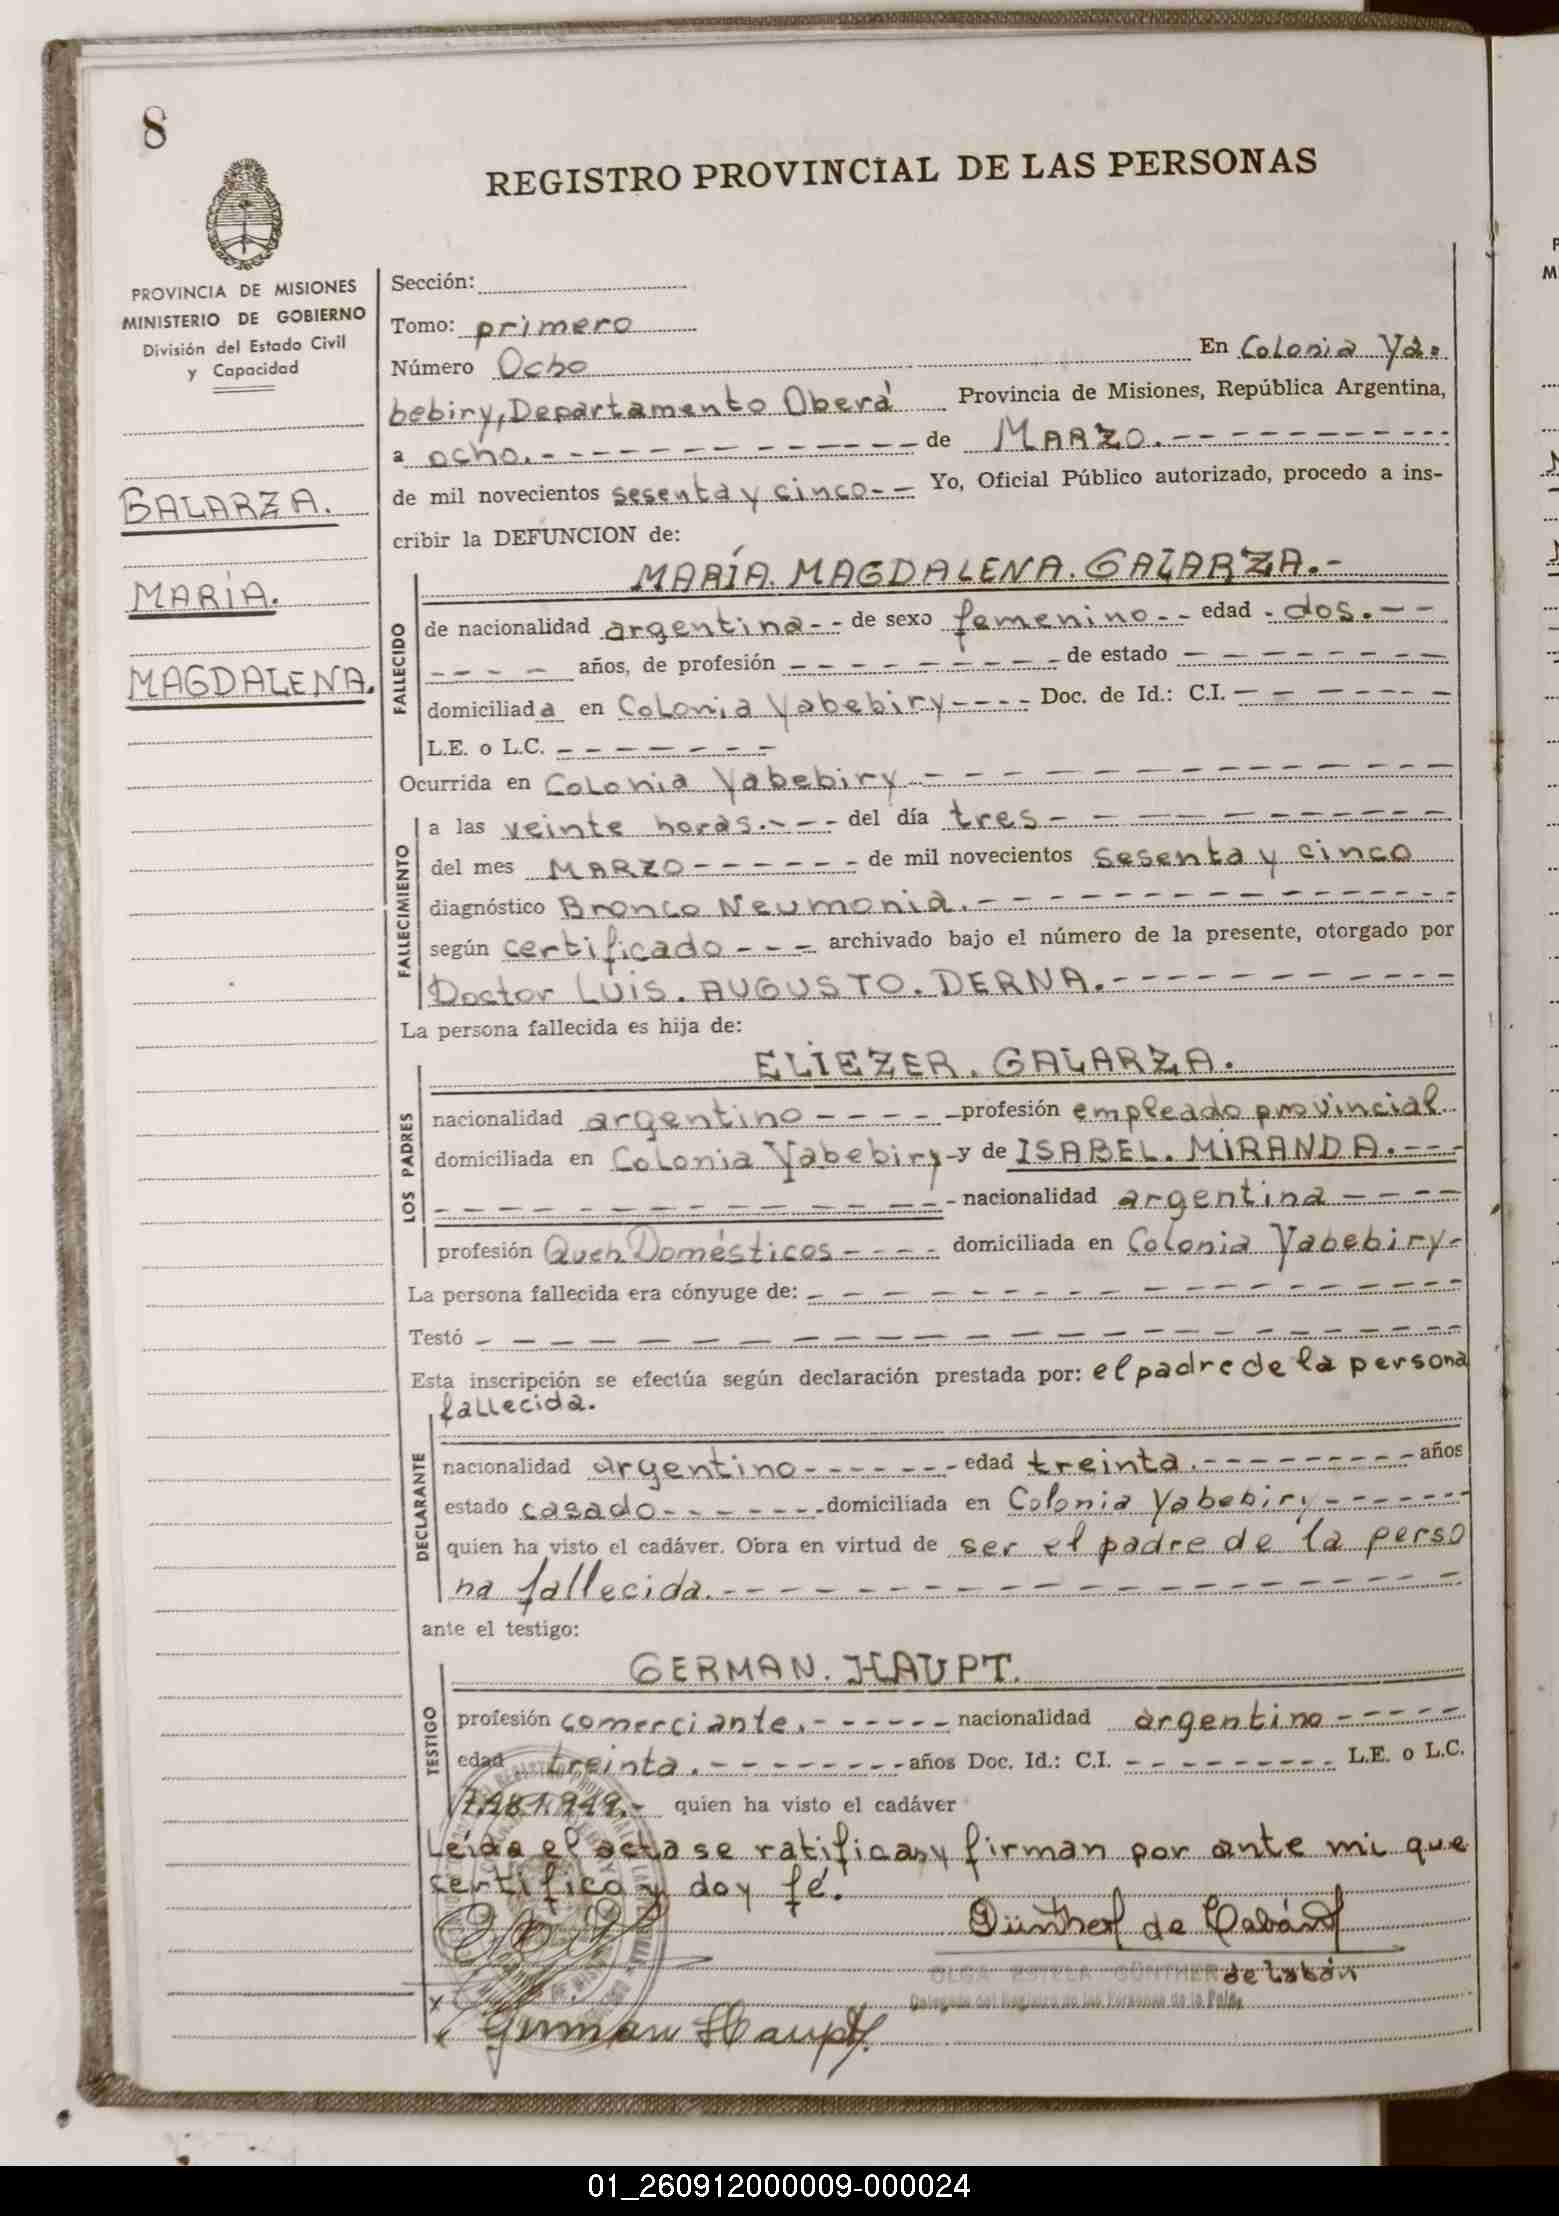 8
REGISTRO PROVINCIAL DE LAS PERSONAS
PROVINCIA DE MISIONES
MINISTERIO DE GOBIERNO
División del Estado Civil
y Capacidad
GALARZA.
MARÍA.
MAGDALENA.
Sección:
Tomo: primero
Número Ocho En Colonia Ya-
bebiry, Departamento Oberá Provincia de Misiones, República Argentina,
a ocho.- de MARZO.-
de mil novecientos sesenta y cinco-- Yo, Oficial Público autorizado, procedo a ins-
cribir la DEFUNCION de:
MARÍA. MAGDALENA. GALARZA.-
FALLECIDO
de nacionalidad argentina-- de sexo femenino-- edad -dos.---
---- años, de profesión --------- de estado -------
domiciliada en Colonia Yabebiry---- Doc. de Id.: C.I. ------
L.E. o L.C. -------
Ocurrida en Colonia Yabebiry
FALLECIMIENTO
a las veinte horas.--- del día tres-
del mes MARZO------ de mil novecientos sesenta y cinco
diagnóstico Bronco Neumonia.-
según certificado--- archivado bajo el número de la presente, otorgado por
Doctor LUIS. AUGUSTO. DERNA.-
La persona fallecida es hija de:
ELIEZER. GALARZA.
LOS PADRES
nacionalidad argentino----- profesión empleado provincial
domiciliada en Colonia Yabebiry- y de ISABEL. MIRANDA.---
nacionalidad argentina----
profesión Queh. Domésticos---- domiciliada en Colonia Yabebiry-
La persona fallecida era cónyuge de: ------
Testó ------
Esta inscripción se efectúa según declaración prestada por: el padre de la persona
fallecida.
DECLARANTE
nacionalidad argentino------- edad treinta.-------- años
estado casado------- domiciliada en Colonia Yabebiry------
quien ha visto el cadáver. Obra en virtud de ser el padre de la perso
na fallecida.-
ante el testigo:
GERMAN. HAUPT.
TESTIGO
profesión comerciante.------ nacionalidad argentino-----
edad treinta.-------- años Doc. Id.: C.I. -------- L.E. o L.C.
quien ha visto el cadáver
Leída el acta se ratifican y firman por ante mi que
certifico y doy fé.
Günther de Tabán
OLGA ESTELA GÜNTHER de Tabán
Delegada del Registro de las Personas de la Pcia.
x
x German Haupt.
01_260912000009-000024